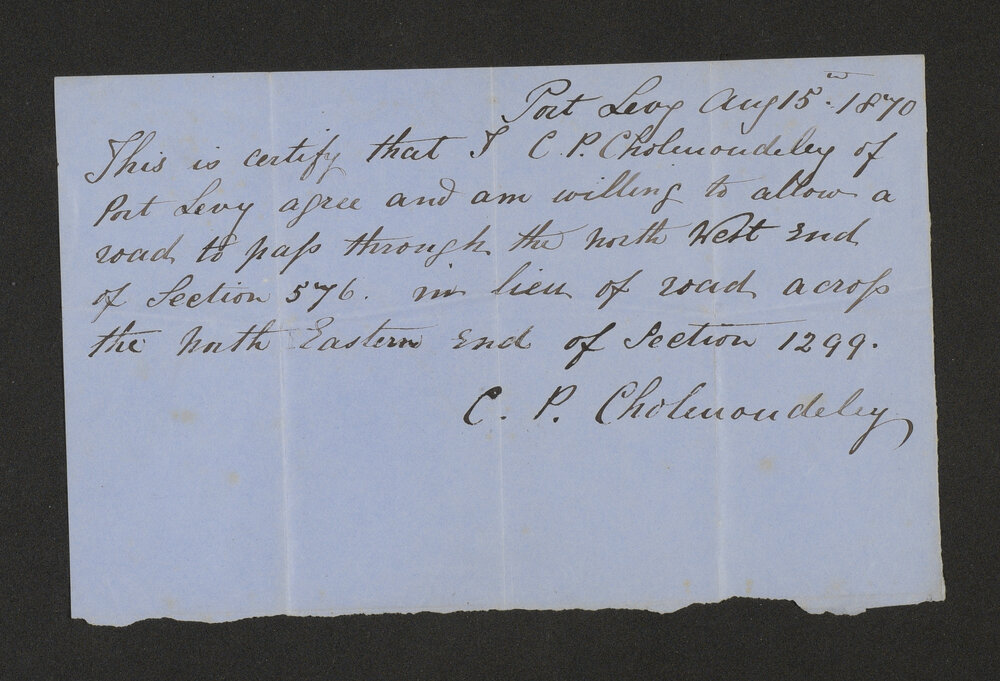 Port Levy Aug 15th 1870
This is certify that I C. P. Cholmondeley of
Port Levy agree and am willing to allow a
road to pass through the north West End
of Section 576. in lieu of road across
the north Eastern End of Section 1299.
C. P. Cholmondeley